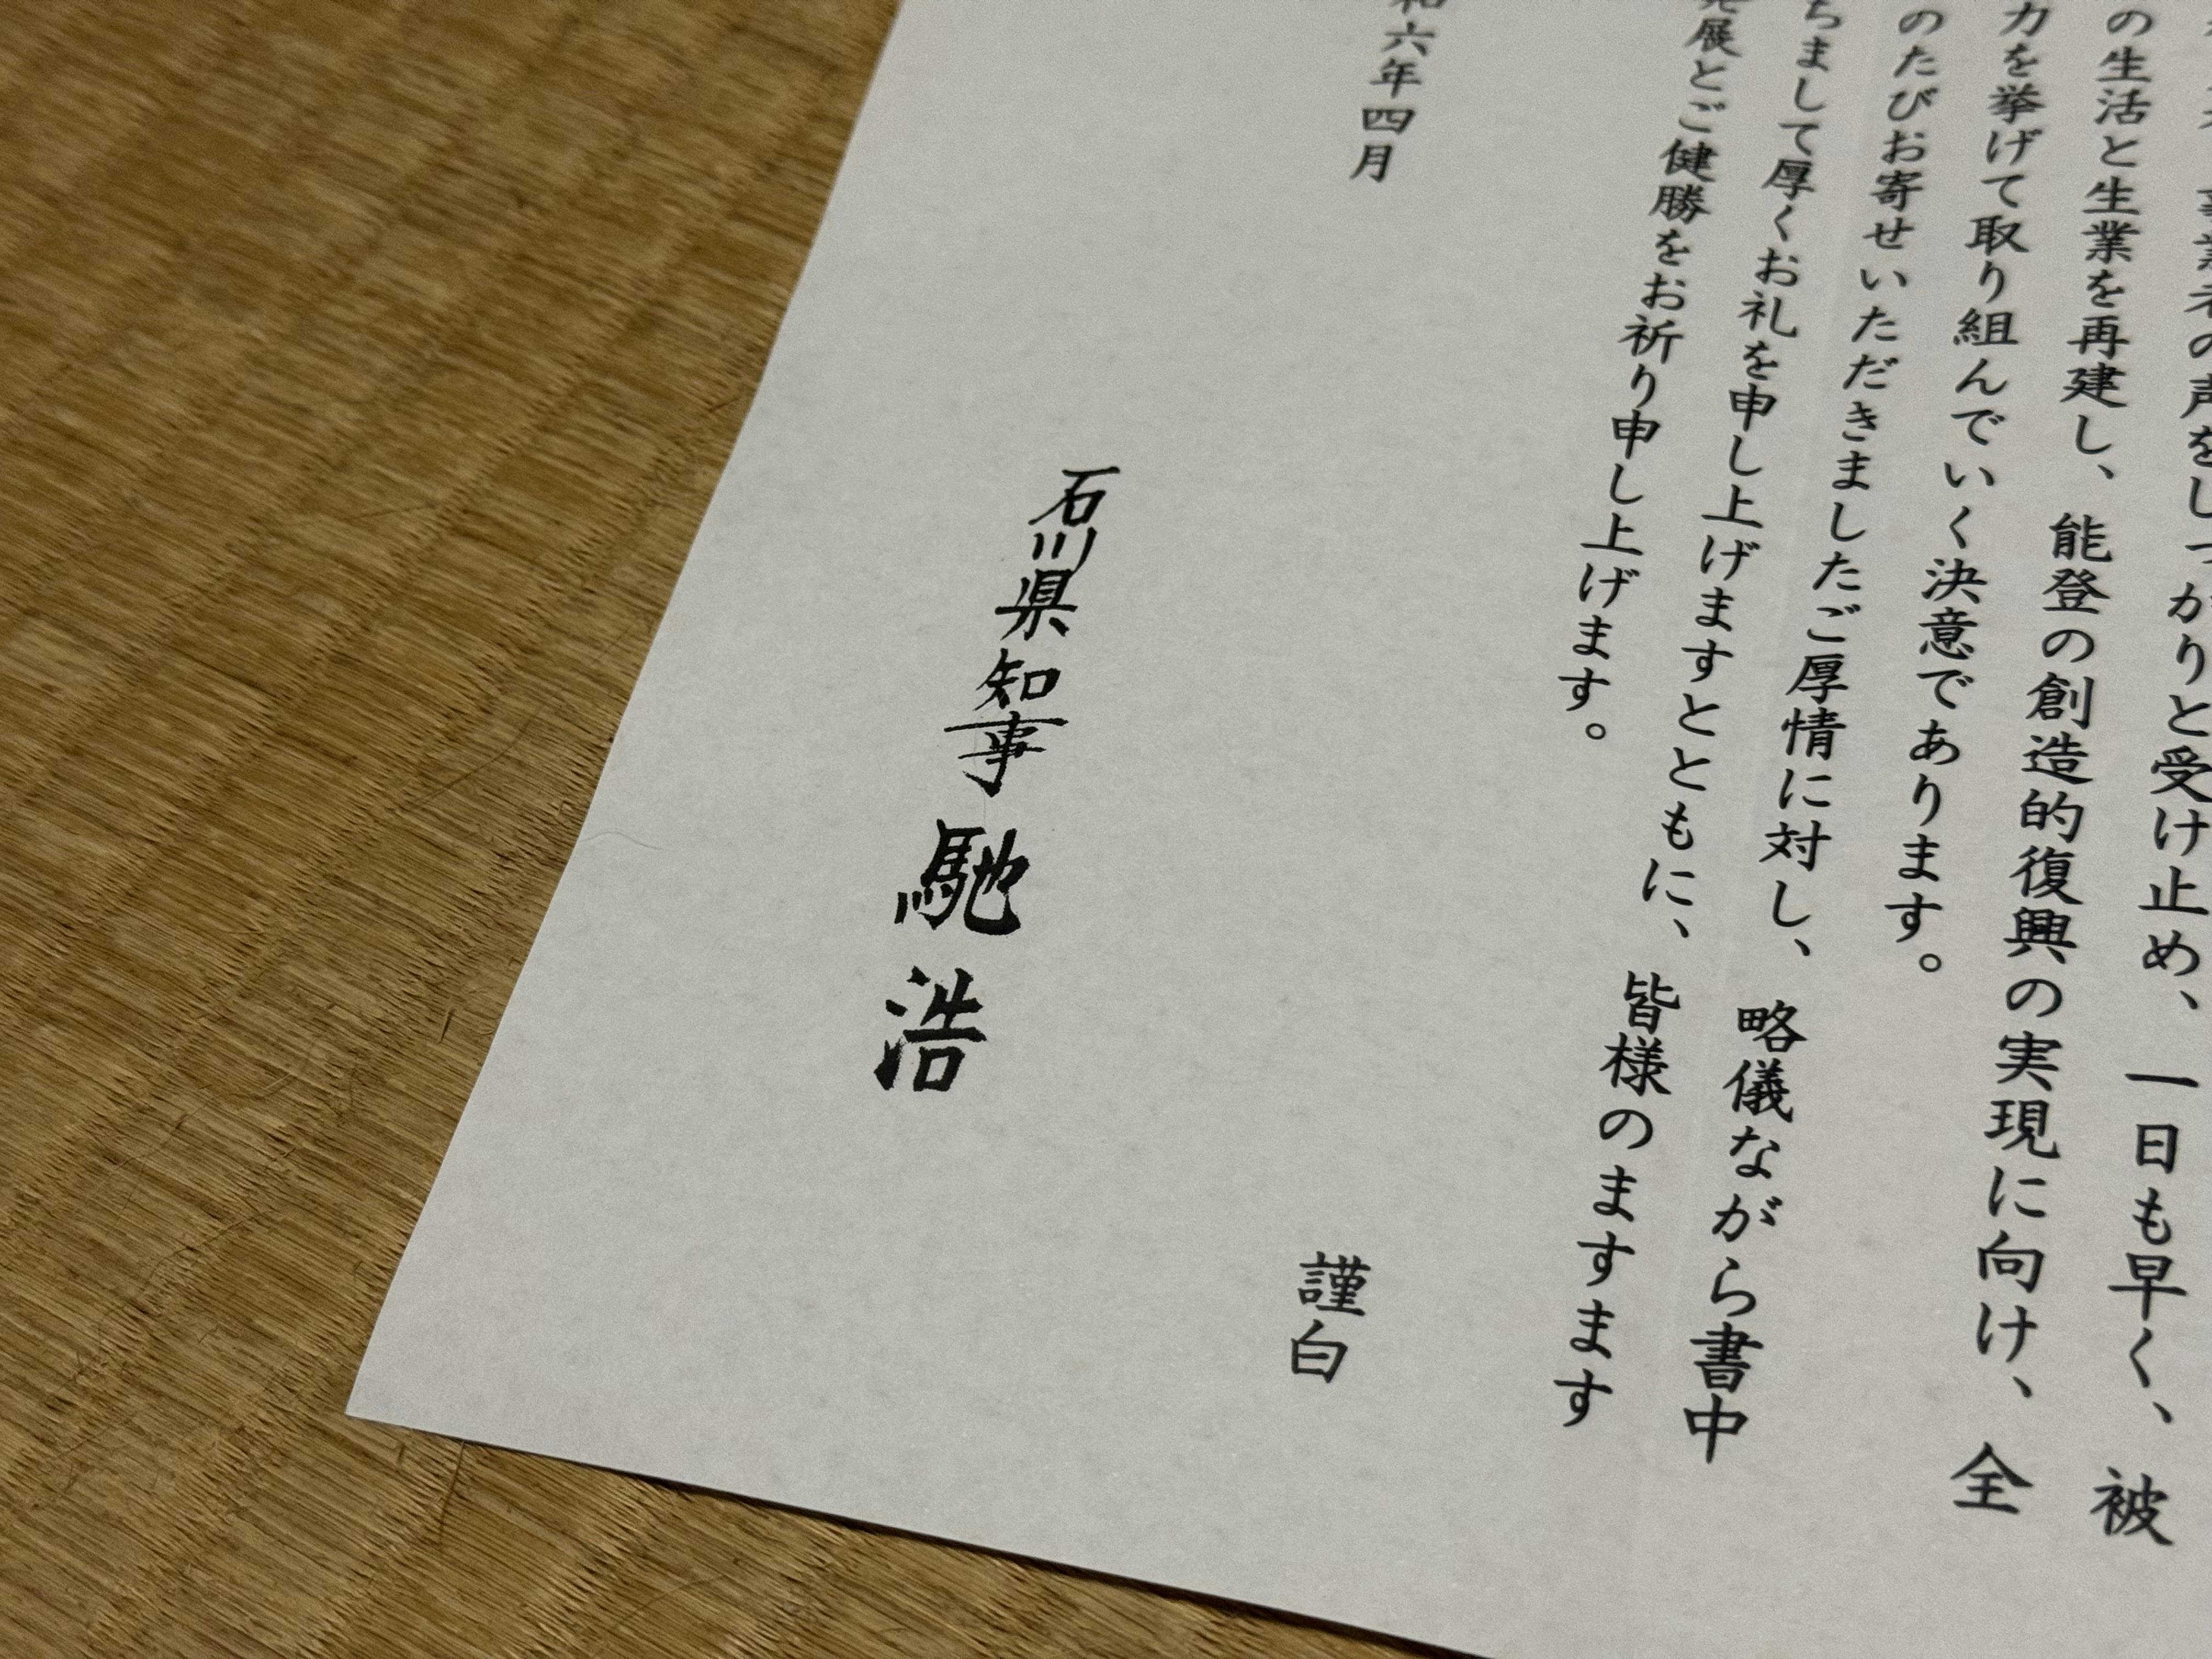 事業者の声をしっかりと受け止め、一日も早く、被
の生活と生業を再建し、能登の創造的復興の実現に向け、全
力を挙げて取り組んでいく決意であります。
のたびお寄せいただきましたご厚情に対し、略儀ながら書中
ちまして厚くお礼を申し上げますとともに、皆様のますます
発展とご健勝をお祈り申し上げます。
謹白
和六年四月
石川県知事 馳 浩